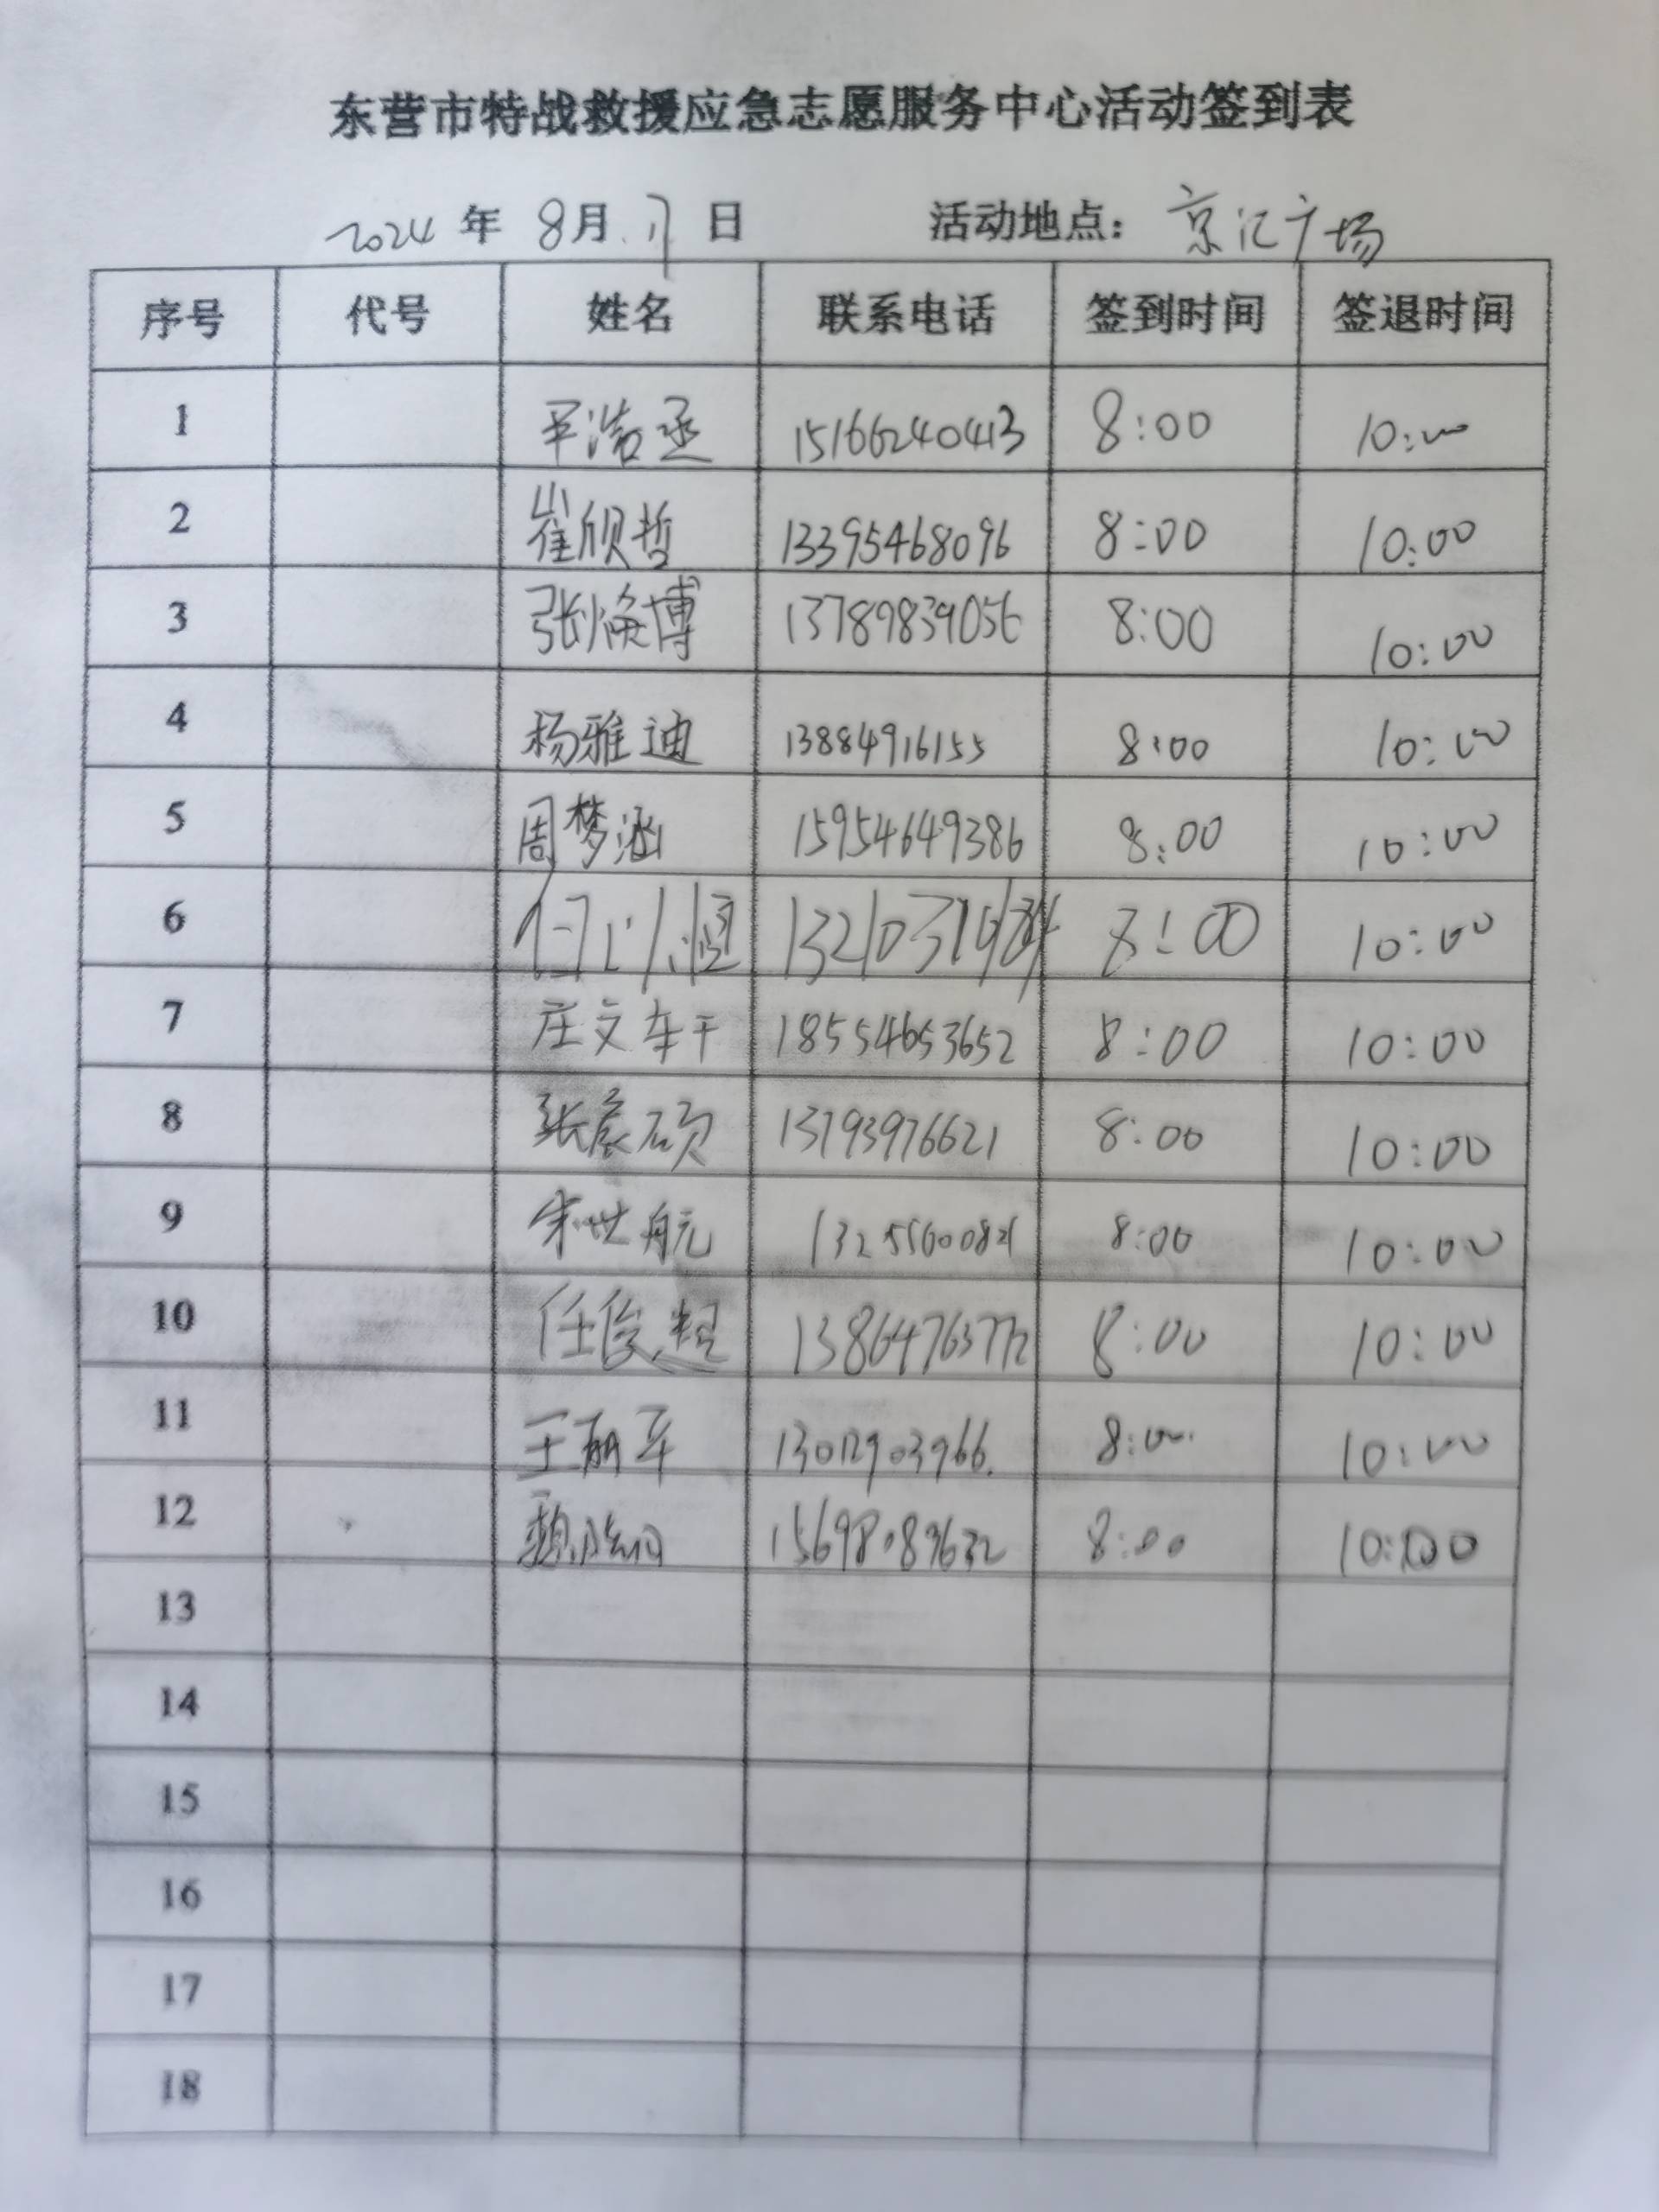 东营市特战救援应急志愿服务中心活动签到表
2024 年 8月 17 日 活动地点: 京汇广场
序号 代号 姓名 联系电话 签到时间 签退时间
1 15166240413 8:00 10:00
2 崔颀哲 13395468096 8:00 10:00
3 张焕博 13789839056 8:00 10:00
4 杨雅迪 13884916155 8:00 10:00
5 周梦涵 15954649386 8:00 10:00
6 8:00 10:00
7 庄文轩 18554653652 8:00 10:00
8 张宸硕 13793976621 8:00 10:00
9 宋世航 8:00 10:00
10 8:00 10:00
11 王丽军 8:00 10:00
12 8:00 10:00
13
14
15
16
17
18